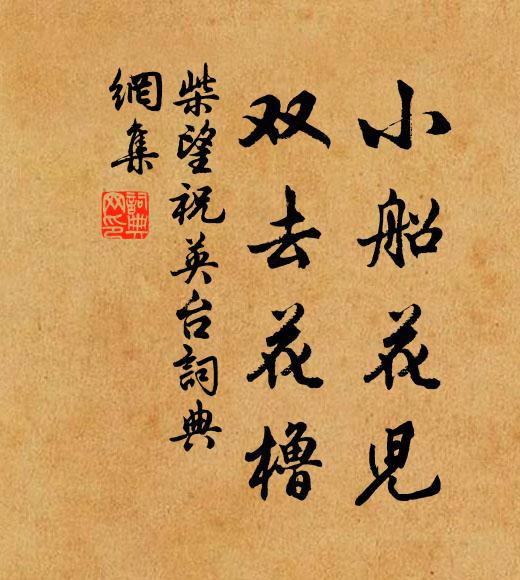 小船花児
双去花櫓
柴望祝英台詞典
網集
詞典網印